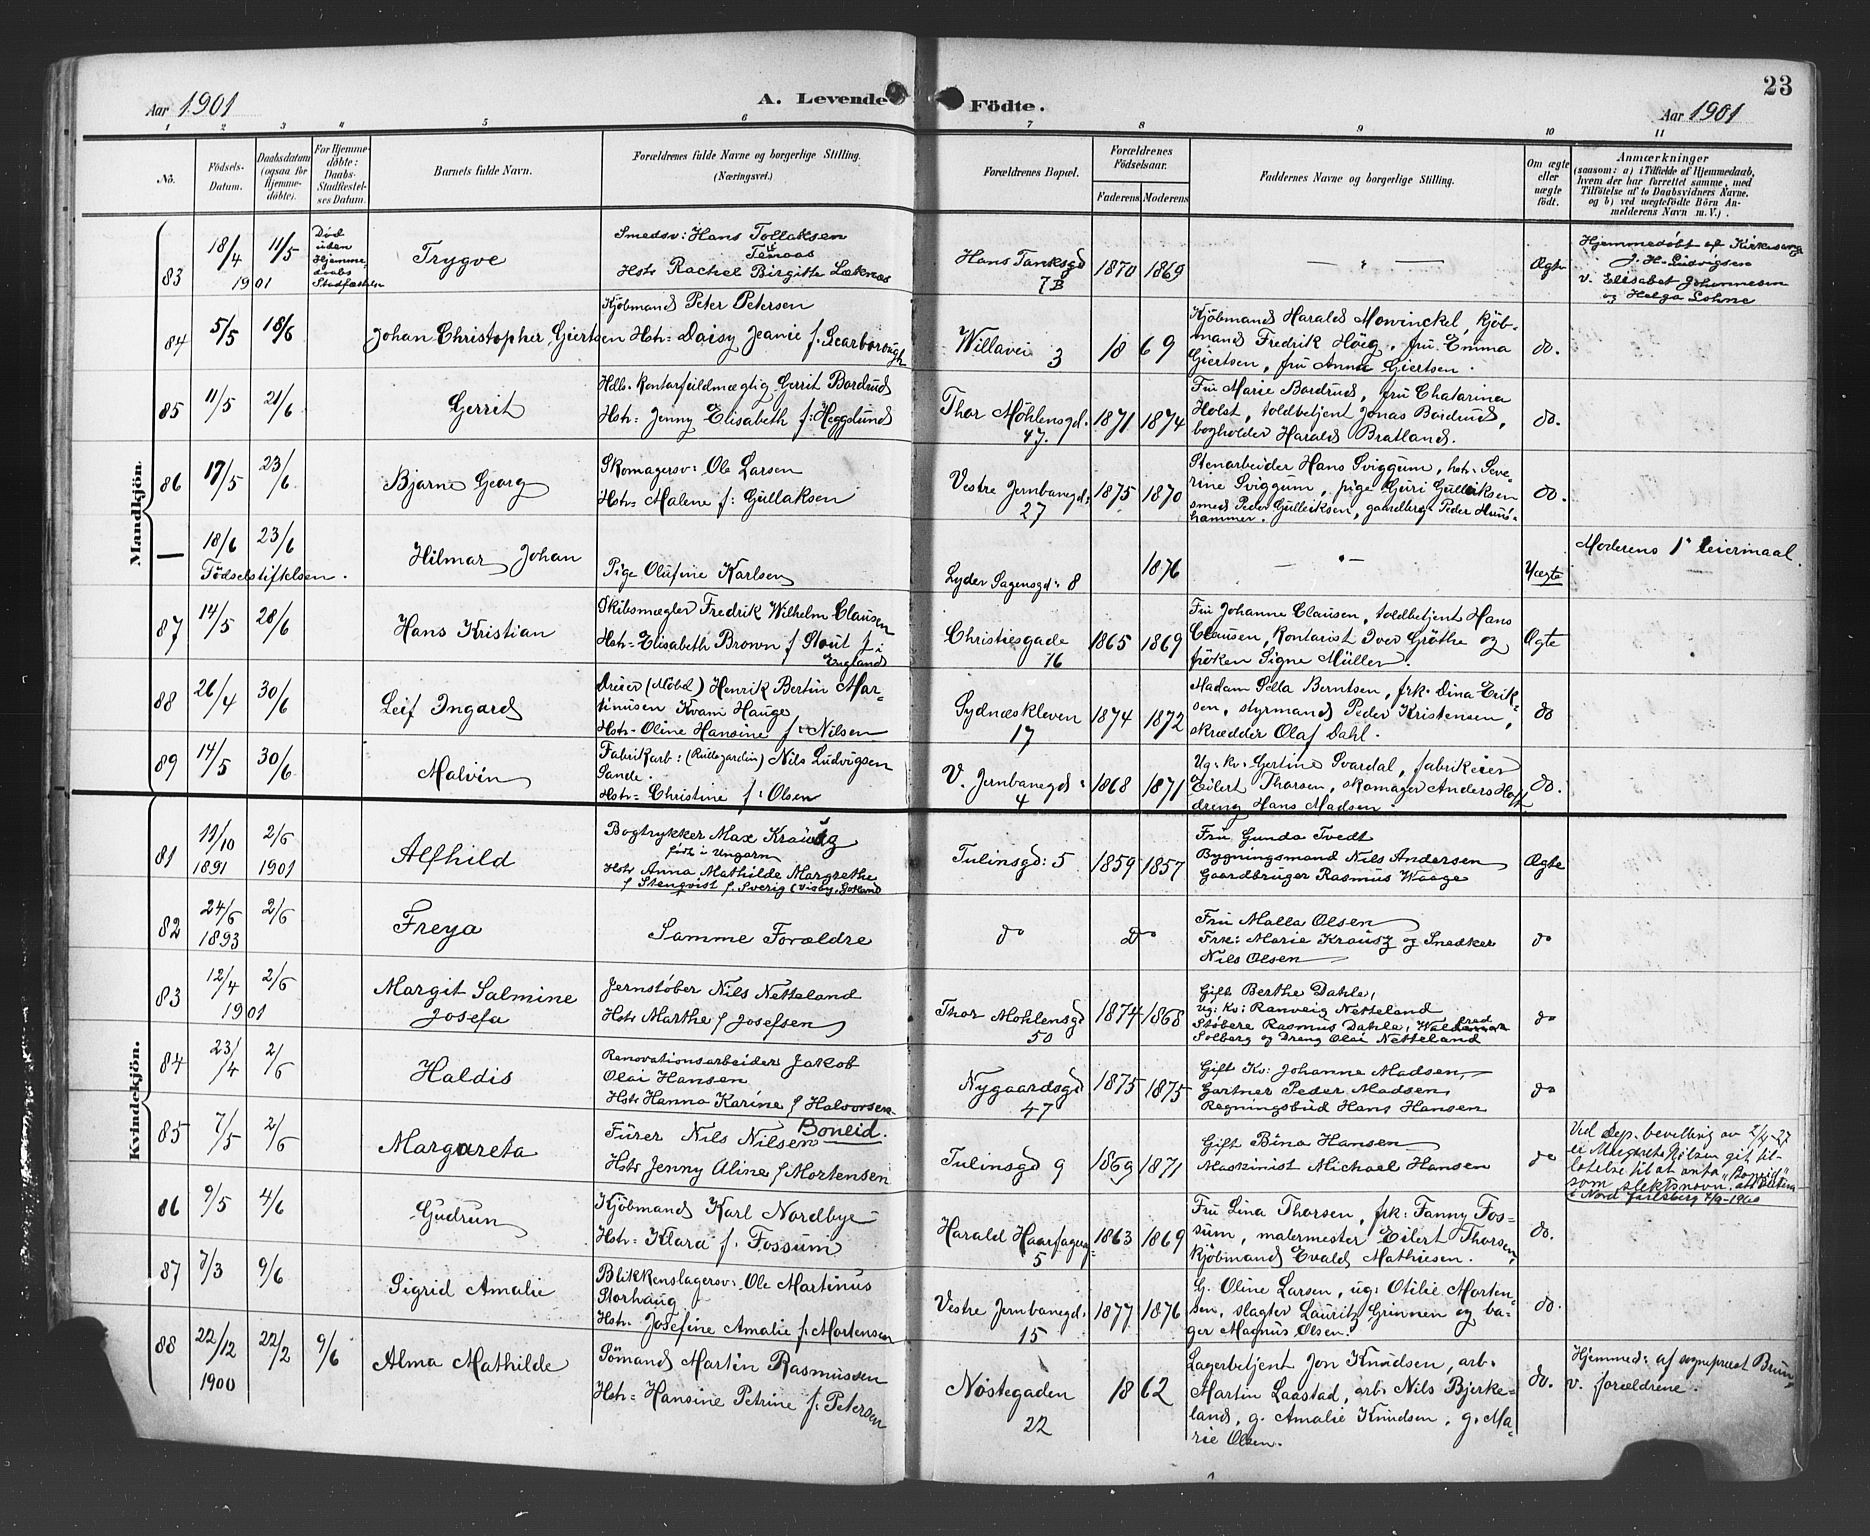 23
Aar 1901
A. Levende Födte.
Aar 1901
1 2 3 4 5 6 7 8 9 10 11
No.
Födsels-
Datum.
Daabsdatum
(ogsaa for
Hjemme-
döbte).
For Hjemme-
döbte:
Daabs-
Stadfæstel-
ses Datum.
Barnets fulde Navn.
Forældrenes fulde Navne og borgerlige Stilling.
(Næringsvei.)
Forældrenes Bopæl.
Forældrenes
Födselsaar.
Faderens Moderens
Faddernes Navne og borgerlige Stilling.
Om ægte
eller
uægte
födt.
Anmærkninger
(saasom: a) i Tilfælde af Hjemmedaab,
hvem der har forrettet samme, med
Tilföielse af to Daabsvidners Navne.
og b) ved uægtefödte Börn An-
melderens Navn m. V.).
Mandkjön.
83
18/4 11/5
1901
Död
uden
Hjemme
daabs
Stadfæstelse
Trygve
Smedsv: Hans Tollaksen
Hstr Rachel Birgitte Leknæs
Hans Tanksgd
7B
1870 1869
Ægte
Hjemmedöbt af Kirkesang
J. H. Ludvigsen
v. Elisabet Johannesen
og Helga Lohne
84
5/5 18/6
Johan Christopher Giertsen
Kjöbmand Peter Petersen
Hstr: Daisy Jeanie f. Scarborough
Willavei 3
1869
Kjöbmand Harald Mowinckel, kjöb-
mand Fredrik Höeg, fru Emma
Giertsen, fru Anna Giertsen.
do.
85
11/5 21/6
Gerrit
Hdls. kontorfuldmægtig Gerrit Bordrud
Hstr: Jenny Elisabeth f: Heggelund
Thor Möhlensgd.
47.
1871 1874
Fru Marie Bordrud, fru Chatarina
Holst, toldbetjent Jonas Bordrud,
bogholder Harald Bratland.
do.
86
17/5 23/6
Bjarne Georg
Skomagersv: Ole Larsen
Hstr: Malene f: Gullaksen
Vestre Jernbanegd:
27
1875 1870
Stenarbeider Hans Sviggum, hstr: Seve-
rine Sviggum, pige Guri Gulleiksen
smed Peder Gulleiksen, gaardbrug: Peder Huus-
hammer.
do.
—
18/6 23/6
Födselstiftelsen.
Hilmar Johan
Pige Olufine Karlsen
Lyder Sagensgd: 8
1876
Uægte
Moderens 1ste leiermaal.
87
14/5 28/6
Hans Kristian
Skibsmægler Fredrik Wilhelm Clausen
Hstr: Elisabeth Brown f Stout f i
England
Christiesgade
16
1865 1869
Fru Johanne Clausen, toldbetjent Hans
Clausen, Kontorist Iver Gröthe og
fröken Signe Müller.
Ægte
88
26/4 30/6
Leif Ingard
Dreier (Möbel) Henrik Bertin Mar-
tinusen Kvam Hauge
Hstr: Oline Hansine f: Nilsen
Sydnæskleven
17
1874 1872
Madam Sella Berntsen, frk: Dina Erik-
sen, styrmand Peder Kristensen,
skrædder Olaf Dahl.
do
89
14/5 30/6
Malvin
Fabrikarb: (Rullegardin) Nils Ludvigsen
Sande.
Hstr: Christine f: Olsen
V. Jernbanegd:
4
1868 1871
Ug: kv: Gertine Svardal, fabrikeier
Eilert Thorsen, skomager Anders Hoff
dreng Hans Madsen.
do.
Kvindekjön.
81
11/10 2/6
1891 1901
Alfhild
Bogtrykker Max Krausz
födt i Ungarn
Hstr Anna Mathilde Margrethe
f Stenqvist f Sverig (Visby, Gotland
Tulinsgd: 5
1859 1857
Fru Gunda Tvedt
Bygningsmand Nils Andersen
Gaardbruger Rasmus Waage
Ægte
82
24/6 2/6
1893
Freya
Samme Forældre
do
Do
Fru Malla Olsen
Frk: Marie Krausz og Snedker
Nils Olsen
do
83
12/4 2/6
1901
Margit Salmine
Josefa
Jernstöber Nils Netteland
Hstr Marthe f Josefsen
Thor Möhlensgd
50
1874 1868
Gift Berthe Dahle,
Ug: Kv: Ranveig Netteland
Stöbere Rasmus Dahle,
Solberg og Dreng Olai Netteland
do
84
23/4 2/6
Haldis
Renovationsarbeider Jakob
Olai Hansen
Hstr Hanna Karine f Halvorsen
Nygaardsgd
47
1875 1875
Gift Kv: Johanne Madsen,
Gartner Peder Madsen,
Regningsbud Hans Hansen
do
85
7/5 2/6
Margareta
Boneid.
Fürer Nils Nilsen
Hstr Jenny Aline f Mortensen
Tulinsgd 9
1869 1871
Gift Bina Hansen
Maskinist Michael Hansen
do
Ved Dep. bevilling av 2/4-27
er Margareta Nilsen git til-
latelse til at anta "Boneid"
som slektsnavn.
i Nord Jarlsberg 7/9-1960
86
9/5 4/6
Gudrun
Kjöbmand Karl Nordbye
Hstr: Klara f. Fossum
Harald Haarfagersg:
5
1863 1869
Fru Lina Thorsen, frk: Fanny Fos-
sum, malermester Eilert Thorsen,
kjöbmand Evald Mathiesen.
do.
87
7/3 9/6
Sigrid Amalie
Blikkenslagersv: Ole Martinus
Storhaug
Hstr. Josefine Amalie f. Mortensen
Vestre Jernbanegd.
15
1877 1876
G. Oline Larsen, ug: Otilie Morten-
sen, slagter Lauritz Grinnen og ba-
ger Magnus Olsen.
do.
88
22/12 22/2 9/6
1900
Alma Mathilde
Sömand Martin Rasmussen
Hstr: Hansine Petrine f. Petersen
Nöstegaden
22
1862
Lagerbetjent Jon Knudsen, arb.
Martin Laastad, arb. Nils Bjerke-
land, g. Amalie Knudsen, g. Ma-
rie Olsen.
do.
Hjemmed: af sognepræst Bruun
v. forældrene.